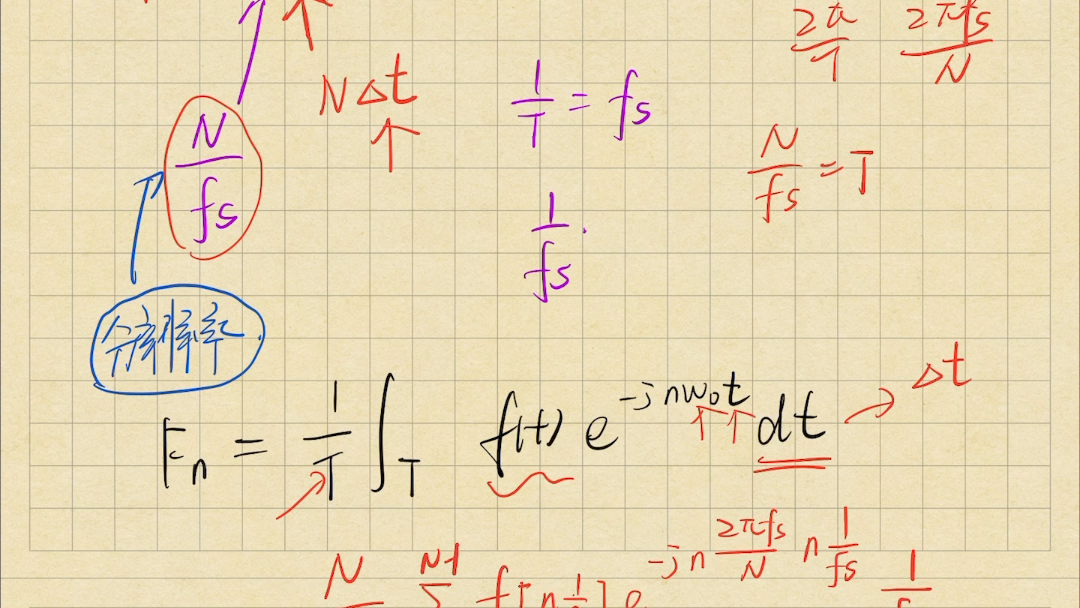 2π/T 2πfs/N
NΔt
1/T = fs
N/fs
N/fs = T
1/fs
分辨率
Δt
Fn = 1/T ∫T f(t) e^-jnω0t dt
N N-1 Σ f[n 1/ ] e^-jn 2πfs/N n 1/fs 1/